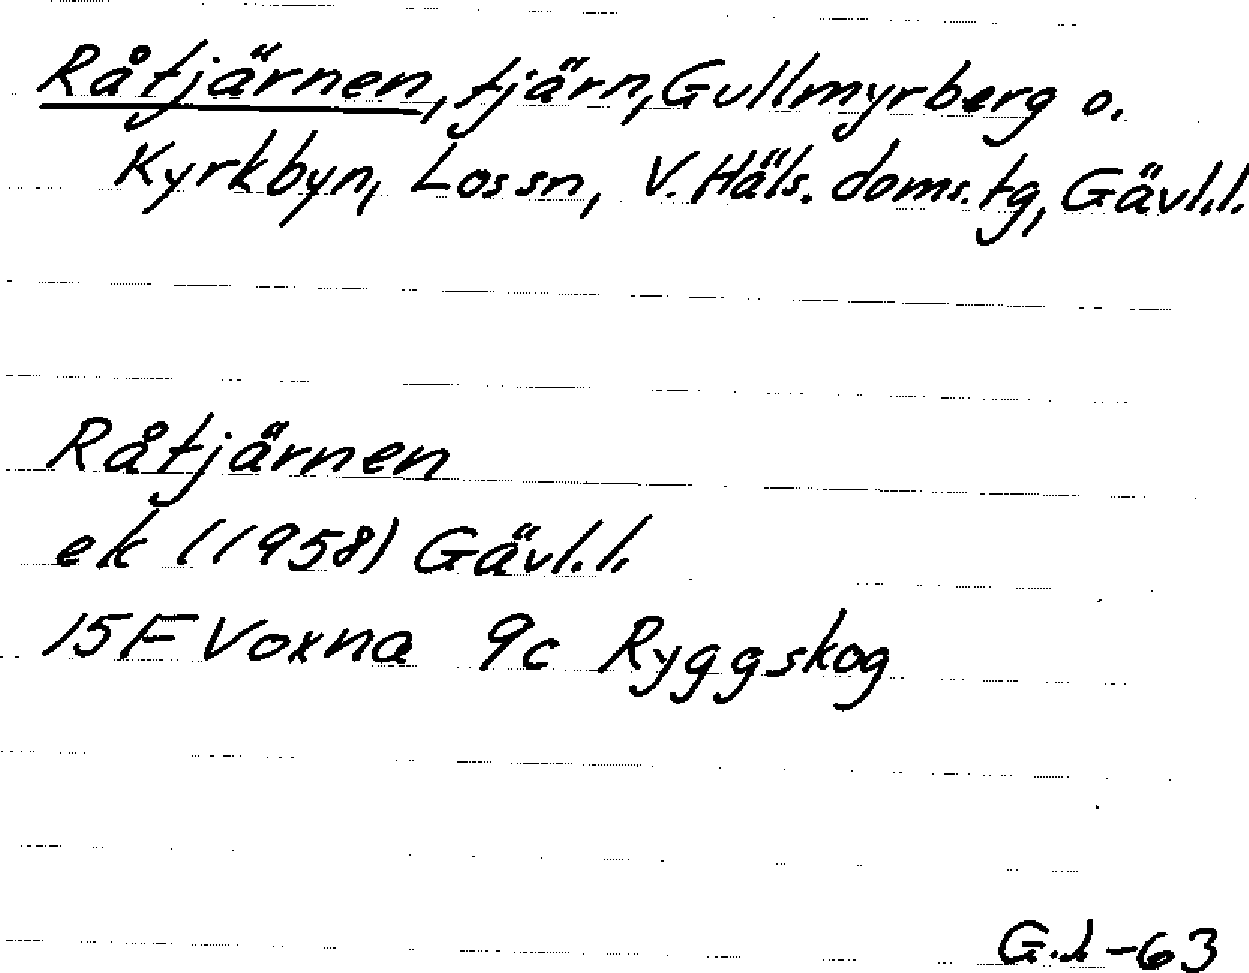 Råtjärnen, tjärn, Gullmyrberg o.
Kyrkbyn, Lossn, V. Häls. doms. tg, Gävl. l.
Råtjärnen
ek (1958) Gävl. l.
15F Voxna 9c Ryggskog
G. L -63